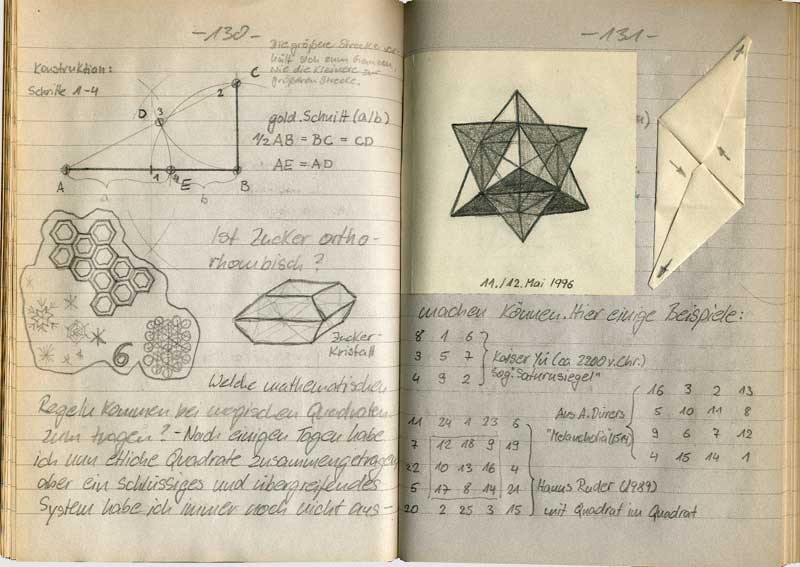 -130-
Konstruktion:
Schritte 1-4
Die größere Strecke ver-
hält sich zum Ganzen,
wie die kleinere zur
größeren Strecke.
C
2
D
3
gold. Schnitt (a/b)
1/2 AB = BC = CD
AE = AD
A
1
4
E
B
a
b
Ist Zucker ortho-
rhombisch?
6
Zucker-
Kristall
Welche mathematischen
Regeln kommen bei magischen Quadraten
zum tragen? - Nach einigen Tagen habe
ich nun etliche Quadrate zusammengetragen
aber ein schlüssiges und übergreifendes
System habe ich immer noch nicht aus-
-131-
11./12. Mai 1996
machen können. Hier einige Beispiele:
8 1 6
3 5 7
4 9 2
Kaiser Yü (ca 2200 v. Chr.)
sog. "Saturnsiegel"
16 3 2 13
5 10 11 8
9 6 7 12
4 15 14 1
Aus A. Dürers
"Melancholia" (1514)
11 24 1 23 6
7 12 18 9 19
22 10 13 16 4
5 17 8 14 21
20 2 25 3 15
Hanns Ruder (1989)
mit Quadrat im Quadrat